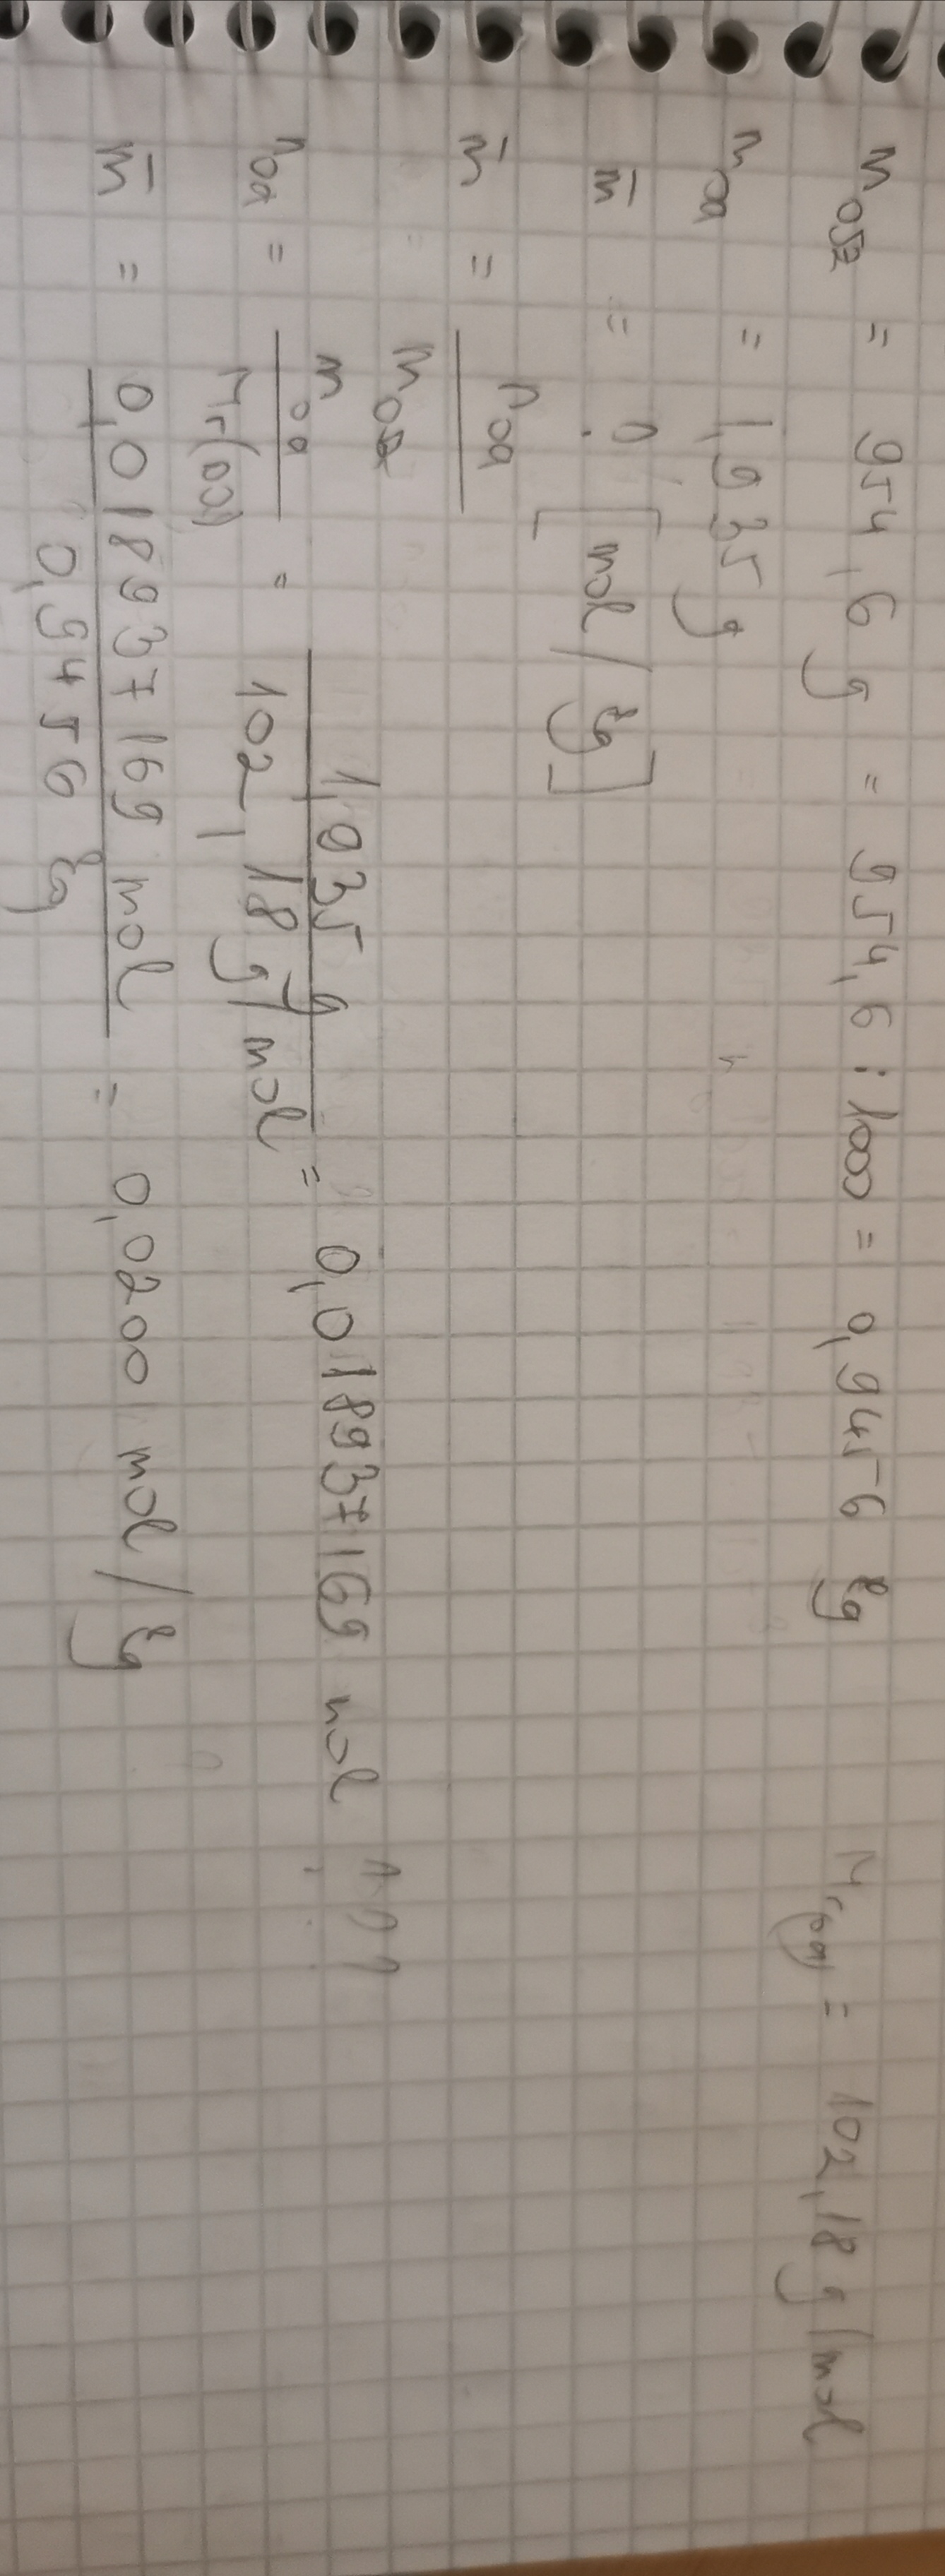 m osz = 954,6 g = 954,6 : 1000 = 0,9456 kg Mr(oa) = 102,18 g/mol
m oa = 1,935 g
m̄ = ? [mol/kg]
m̄ = n oa / m osz
n oa = m oa / Mr(oa) = 1,935 g / 102,18 g/mol = 0,018937169 mol
m̄ = 0,018937169 mol / 0,9456 kg = 0,0200 mol/kg